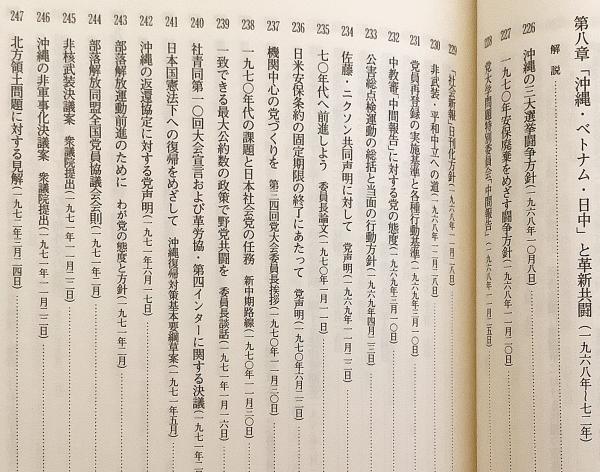 第八章 「沖縄・ベトナム・日中」と革新共闘(一九六八年~七二年)
解説
226 沖縄の三大選挙闘争方針(一九六八年一〇月八日)
227 一九七〇年安保廃棄をめざす闘争方針(一九六八年一
228 党大学問題特別委員会「中間報告」(一九六八年一一月二五日)
229 「社会新報」日刊化方針(一九六八年一
230 非武装・平和中立への道(一九六八年一二月二八日)
231 党員再登録の実施基準と各種行動基準(一九六九年三月一〇日)
232 中教審「中間報告」に対する党の態度(一九六九年三月一〇日)
233 公害総点検運動の総括と当面の行動方針(一九六九年四月二三日)
234 佐藤・ニクソン共同声明に対して 党声明(一九六九年一一月二二日)
235 七〇年代へ前進しよう 委員長論文(一九七〇年一月一日)
236 日米安保条約の固定期限の終了にあたって 党声明(一九七〇年六月二二日)
237 機関中心の党づくりを 第三四回党大会委員長挨拶(一九七〇年一一月三〇日)
238 一九七〇年代の課題と日本社会党の任務 新中期路線(一九七〇年一一月三〇日)
239 一致できる最大公約数の政策で野党共闘を 委員長談話(一九七一年一月二六日)
240 社青同第一〇回大会宣言および革労協・第四インターに関する決議(一九七一年二
241 日本国憲法下への復帰をめざして 沖縄復帰対策基本要綱草案(一九七一年五月)
242 沖縄の返還協定に対する党声明(一九七一年六月一七日)
243 部落解放運動前進のために わが党の態度と方針(一九七一年二月)
244 部落解放同盟全国党員協議会会則(一九七一年二月)
245 非核武装決議案 衆議院提出(一九七一年一一月二二日)
246 沖縄の非軍事化決議案 衆議院提出(一九七一年一一月二二日)
247 北方領土問題に対する見解(一九七二年二月二四日)